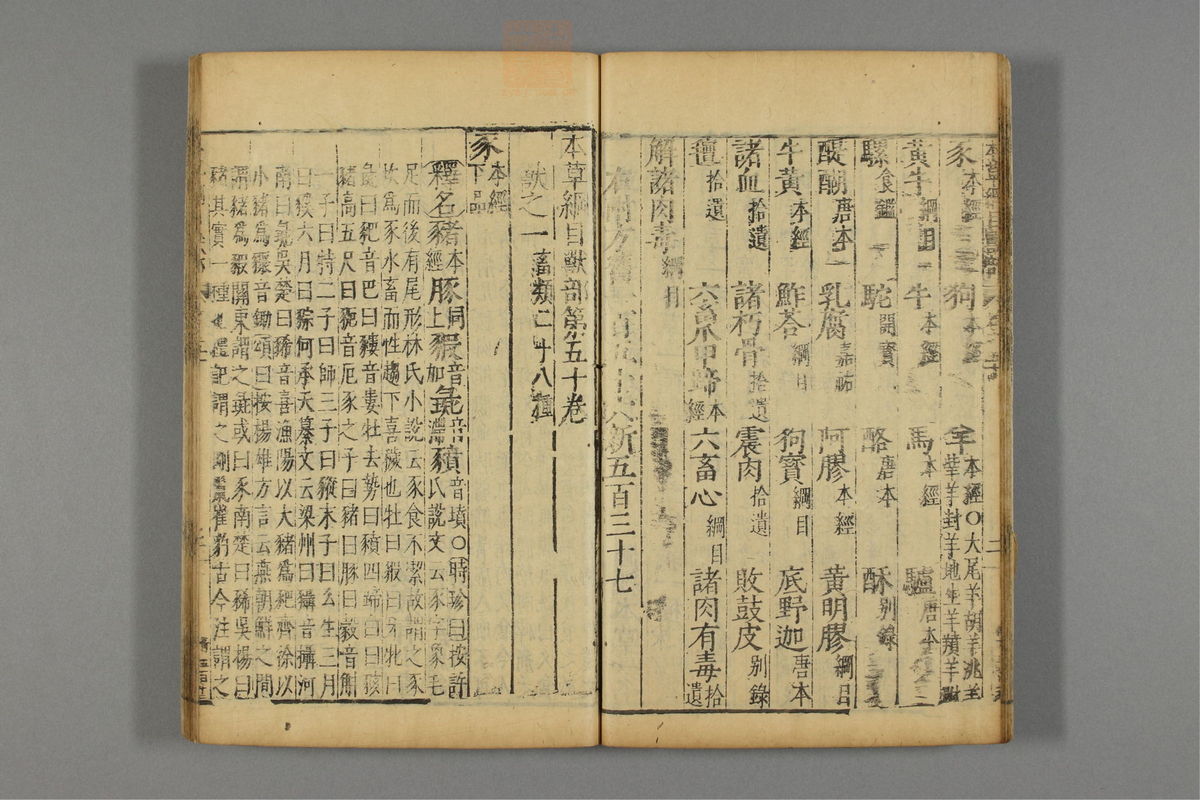 豕本經 狗本經 羊本經○大尾羊胡羊洮羊𦍩羊封羊地生羊羵羊
黃牛綱目 牛本經 馬本經 驢唐本
騾食鑑 駝開寶 酪唐本 酥別錄
醍醐唐本 乳腐嘉祐 阿膠本經 黃明膠綱目
牛黃本經 鮓荅綱目 狗寶綱目 底野迦唐本
諸血拾遺 諸朽骨拾遺 震肉拾遺 敗鼓皮別錄
氊拾遺 六畜爪甲蹄本經 六畜心綱目 諸肉有毒拾遺
解諸肉毒綱目
右附方 新五百三十七
本草綱目獸部第五十卷
獸之一 畜類二十八種
豕本經下品
釋名豬本經豚同上豭音加彘音滯豶音墳○時珍曰按許氏說文云豕字象毛
足而後有尾形林氏小說云豕食不潔故謂之豕
坎為豕水畜而性趨下喜穢也牡曰豭曰牙牝曰
彘曰豝音巴曰䝏音婁牡去勢曰豶四蹄曰豥
豬高五尺曰䝈音厄豕之子曰豬曰豚曰豰音斛
一子曰特二子曰師三子曰豵末子曰幺生三月
曰豯六月曰豵何承天纂文云梁州曰䝋音攝河
南曰彘吳楚曰豨音喜漁陽以大豬為豝齊徐以
小豬為䝕音鋤頌曰按楊雄方言云燕朝鮮之間
謂豬為豭關東謂之彘或曰豕南楚曰豨吳楊曰
豬其實一種也禮記謂之剛鬣崔豹古今注謂之